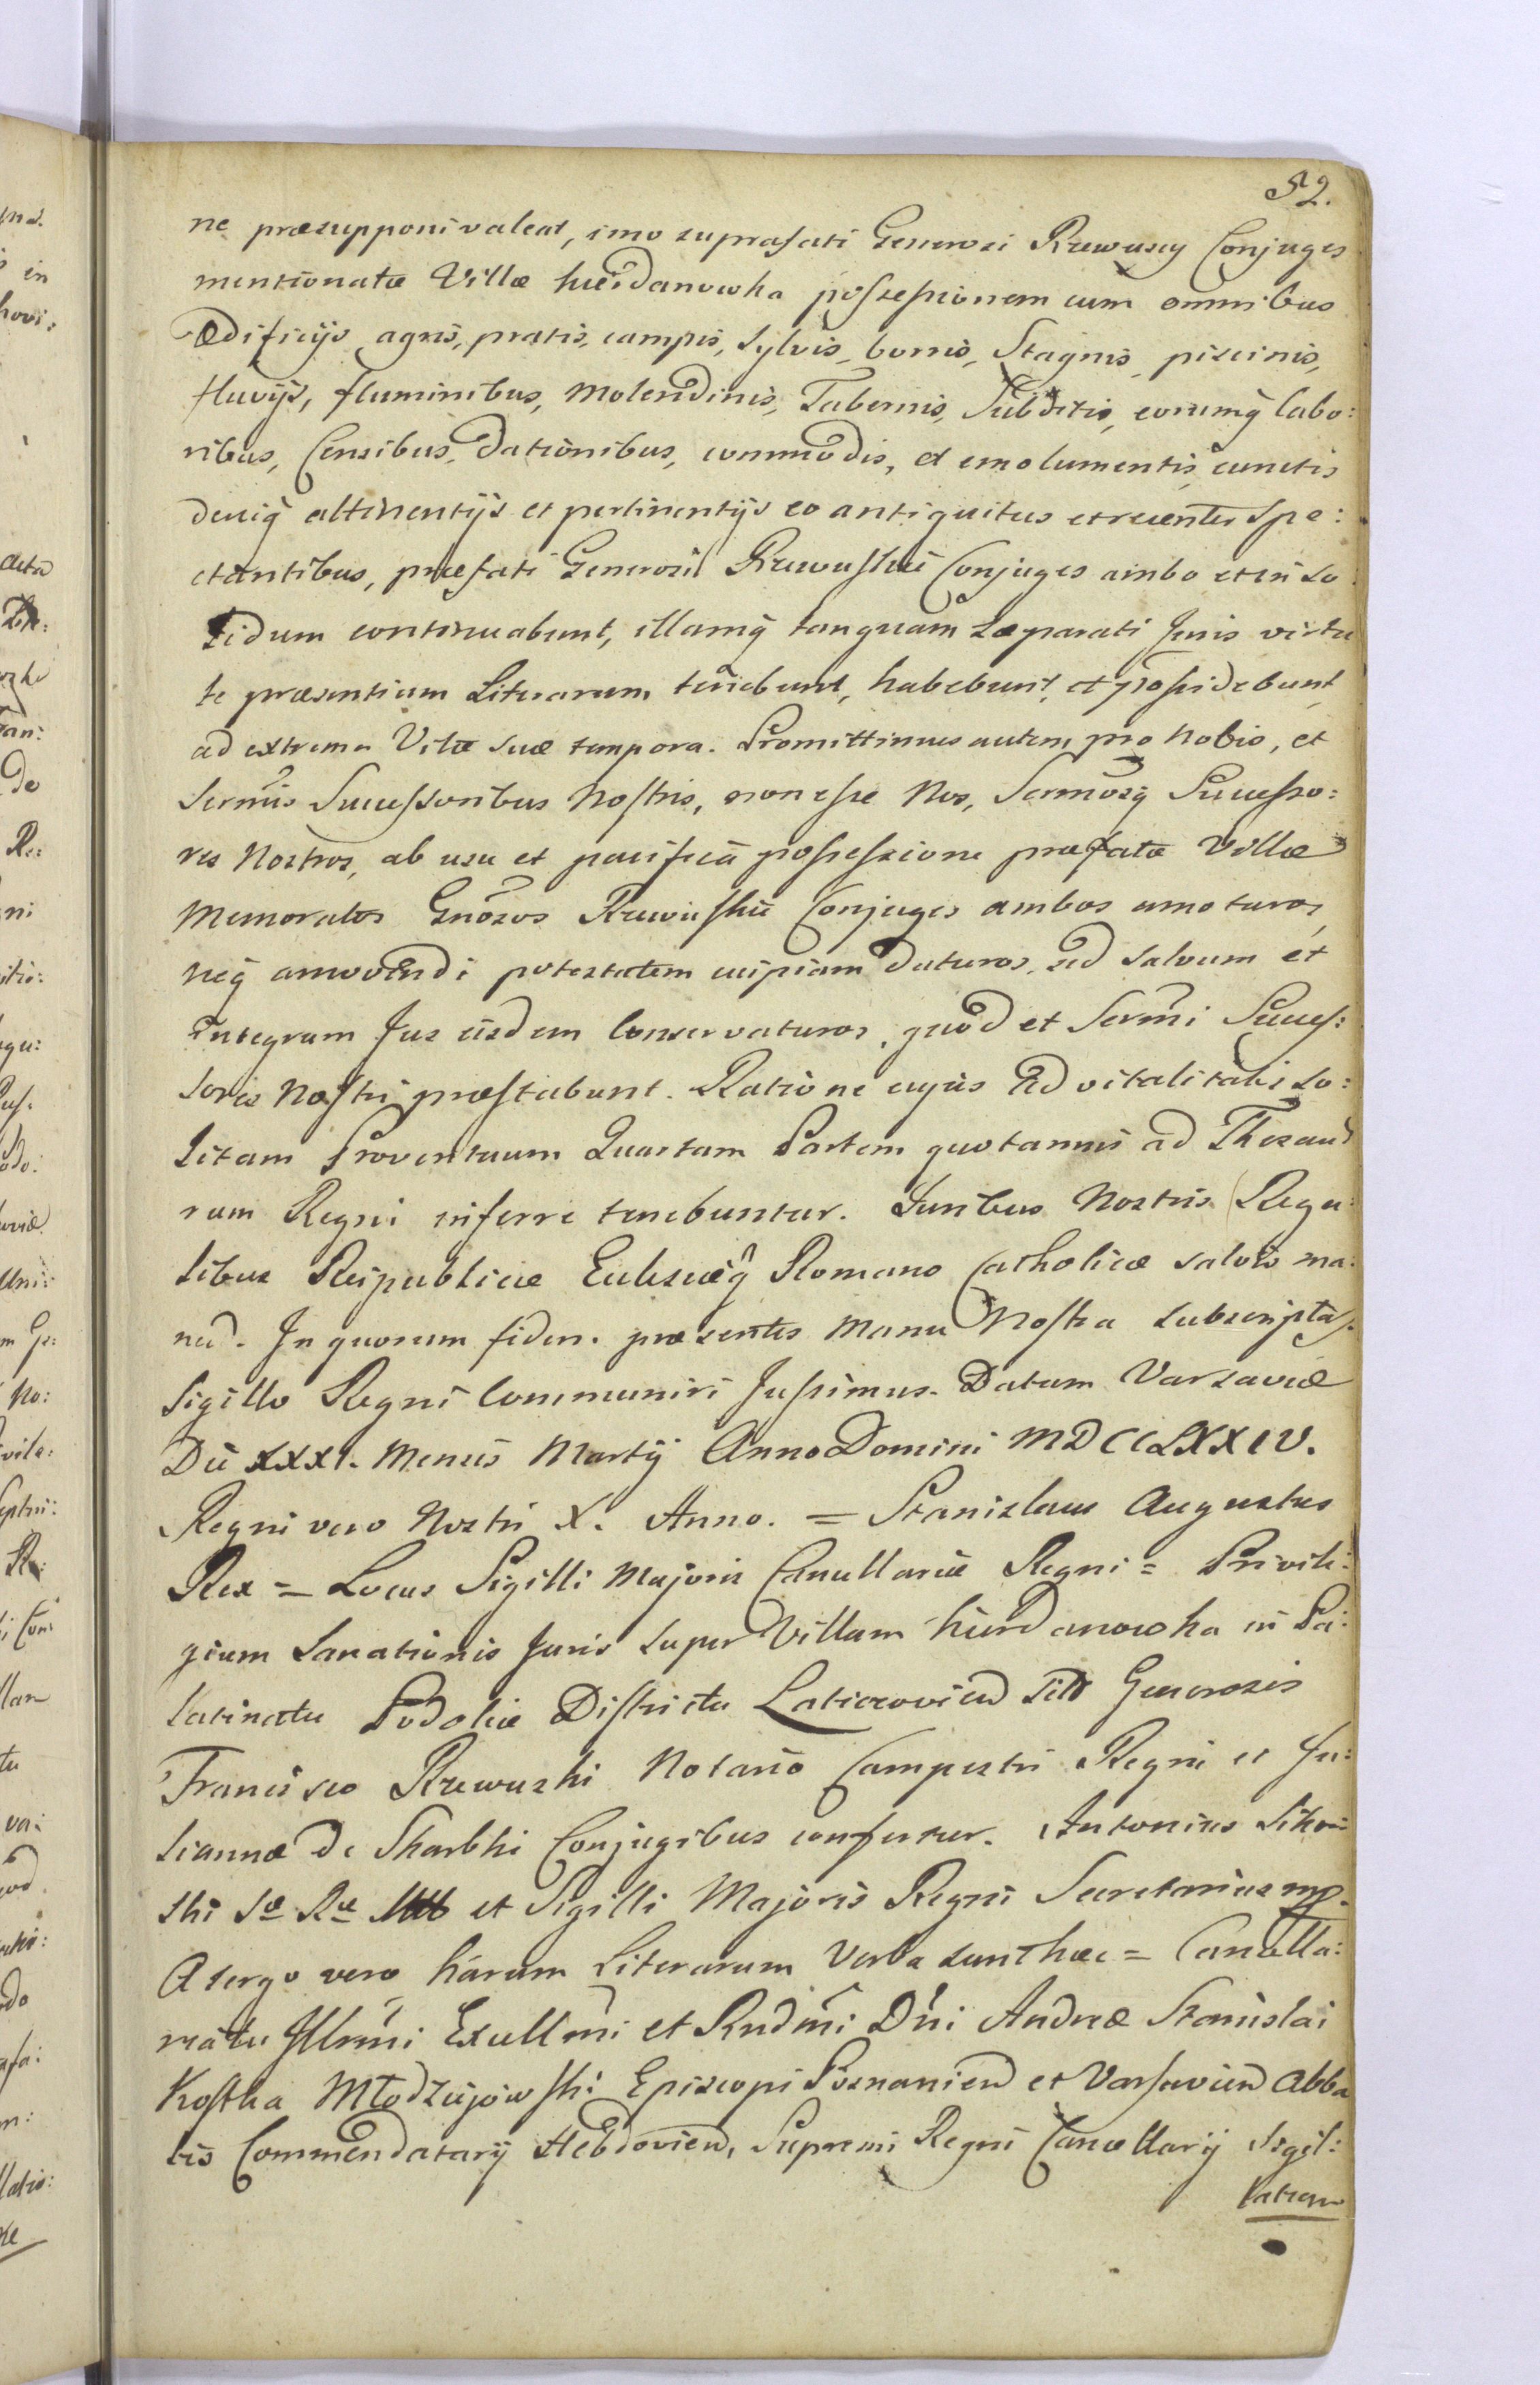 52.
ne præsupponi valeat, imo suprafati Generosi Rzewuscy Conjuges
mentionatæ Villæ hierdanowka possessionem cum omnibus
Ædificijs, agris, pratis, campis, Sylvis, borris, Stagnis, piscinis,
fluvijs, fluminibus, Molendinis, Tabernis, Subditis, eorumq̃ labo:
ribus, Censibus, Dationibus, commodis, et emolumentis, cunctis
deniq̃ attinentijs et pertinentijs eo antiquitus et recenter Spe:
ctantibus, præfati Generosi Rzewuskie Conjuges ambo et in so
lidum continuabunt, illamq̃ tanquam Separati Juris virtu
te præsentium Literarum tenebunt, habebunt, et possidebunt
ad extrema Vitæ suæ tempora. Promittimus autem pro Nobis, et
Sermis Successoribus Nostris, non esse Nos, Sermosq̃ Successo:
res Nostros, ab usu et pacifica possessione præfatæ Villæ
Memoratos Gnosos Rzewuskie Conjuges ambos amoturos,
neq̃ amovendi potestatem cuipiam daturos, sed salvum et
integrum Jus iisdem Conservaturos, quod et Sermi Succes:
sores Nostri præstabunt. Ratione cujus Advitalitatis so:
litam Proventuum Quartam Partem quotannis ad Thesau
rum Regni inferre tenebuntur. Juribus Nostris Rega:
libus Reipublicæ Eclesiæq̃ Romano Catholicæ salvis ma:
nen̄d. In quorum fidem præsentes Manu Nostra subscriptas
Sigillo Regni Communiri Jussimus. Datum Varsaviæ
Die XXXI. Mensis Martij Anno Domini MDCCLXXIV.
Regni vero Nostri X. Anno. = Stanislaus Augustus
Rex = Locus Sigilli Majoris Cancellariæ Regni = Privile:
gium Sanationis Juris super Villam hierdanowka in Pa:
latinatu Podoliæ Districtu Laticzovien̄ Sit Generosis
Francisco Rzewuski Notario Campestri Regni et Ju:
liannæ De Skarbki Conjugibus confertur. Antonius Sikor
ski Sæ Ræ Mtt et Sigilli Majoris Regni Secretarius mp.
A tergo vero harum Literarum Verba sunt hæc = Cancella:
riatu Illrmi Excellmi et Rndmi Dni Andreæ Stanislai
Kostka Młodziejowski Episcopi Posnanien̄ et Varsavien̄ Abba
tis Commendatarij Hebdovien̄, Supremi Regni Cancellarij Sigil:
latum